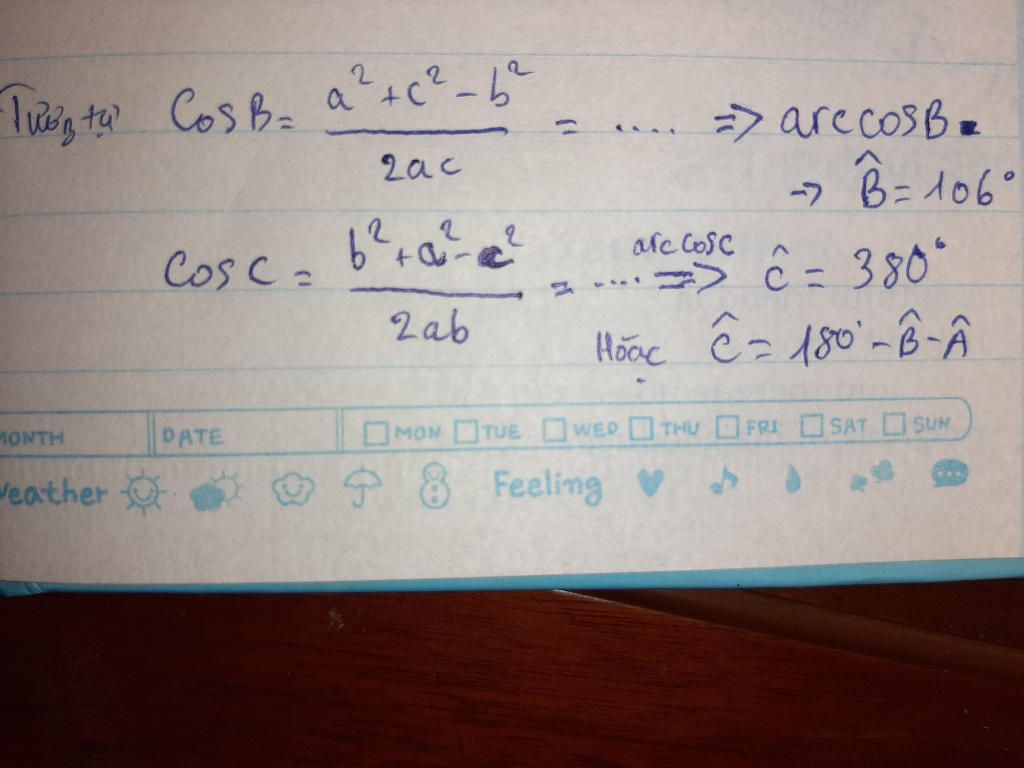 Tương tự CosB = a² + c² - b² / 2ac = .... => arccosB
→ B̂ = 106°
CosC = b² + a² - c² / 2ab = .... arccosC => Ĉ = 380°
Hoặc Ĉ = 180° - B̂ - Â
MONTH DATE MON TUE WED THU FRI SAT SUN
Weather Feeling